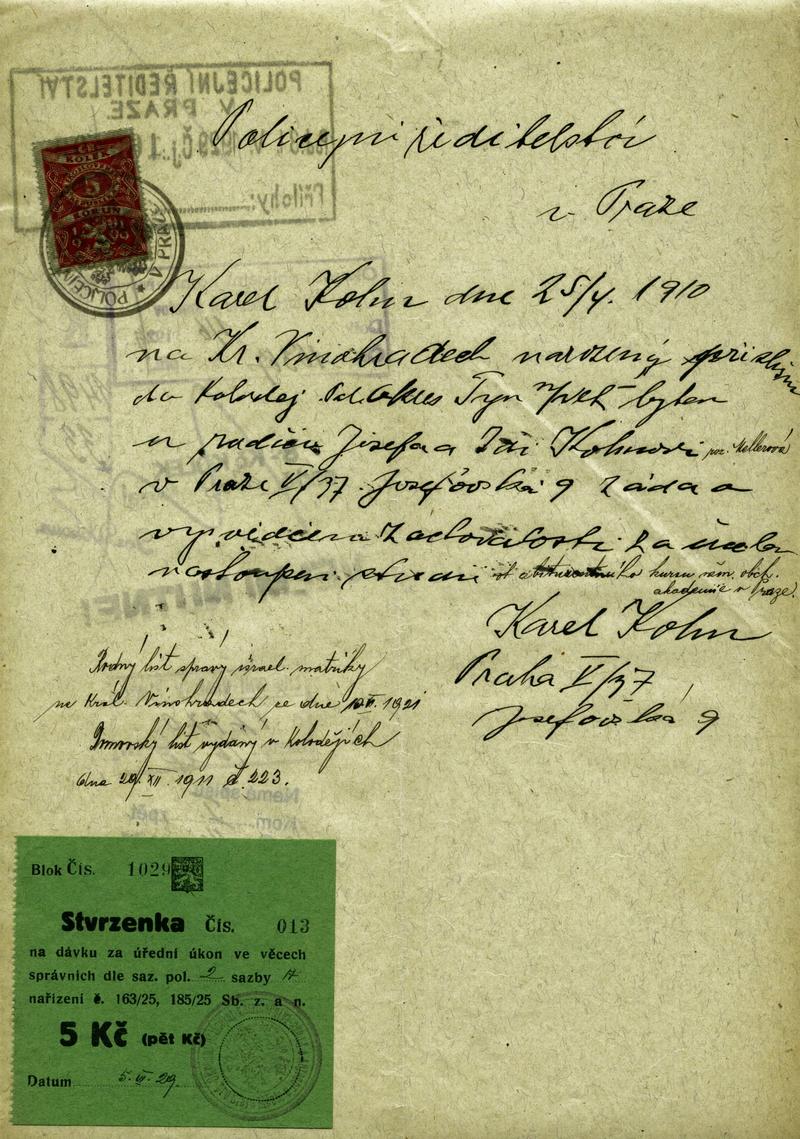 Policejní ředitelství
v Praze
POLICEJNÍ ŘEDITELSTVÍ
V PRAZE
Přílohy:
KOLEK
5
KORUN
V PRAZE
Karel Kohn dne 25/4. 1910
na Kr. Vinohradech narozený příslušn
do Koloděj Pol. Okres Týn n/Vlt bytem
u rodičů Josefa a Kohnovi roz. Mellerová
v Praze V/37 Josefovská 9 žádá o
vysvědčení zachovalosti za účelem
nastoupení studií abiturentního kursu něm. obch.
akademie v Praze.
Karel Kohn
Praha V/37
Josefovská 9
Rodný list správy israel. matriky
na Král. Vinohradech ze dne 1921
Domovský list vydaný v Kolodějích
dne 29. XII. 1911 č. 223.
Blok Čís. 1029
Stvrzenka Čís. 013
na dávku za úřední úkon ve věcech
správních dle saz. pol. 2 sazby A
nařízení č. 163/25, 185/25 Sb. z. a n.
5 Kč (pět Kč)
Datum 5. 29